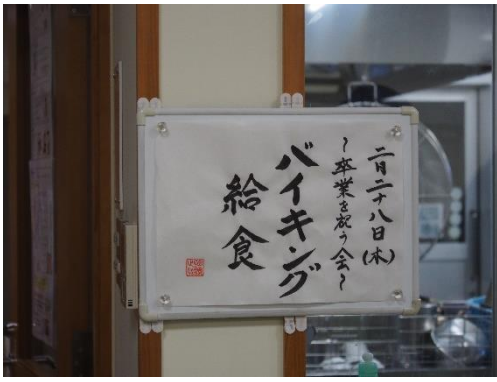 二月二十八日(木)
〜卒業を祝う会〜
バイキング
給食